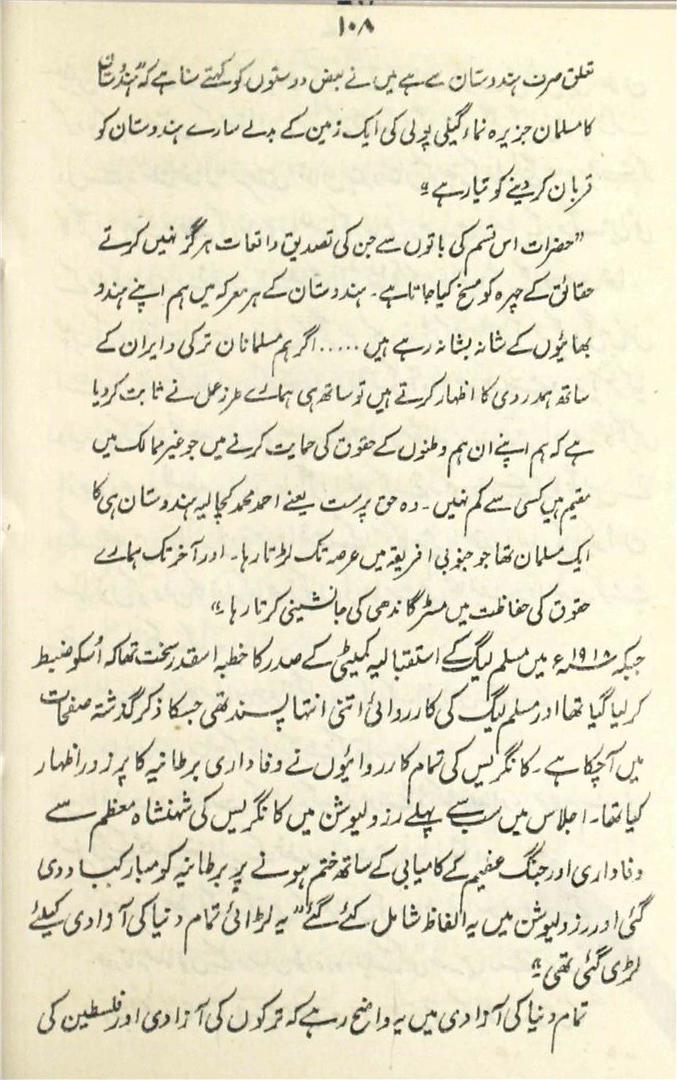 ۱۰۸
تعلق صرف ہندوستان سے ہے میں نے بعض دوستوں کو کہتے سنا ہے کہ "ہندوستان
کا مسلمان جزیرہ نماء گیلی پولی کی ایک زمین کے بدلے سارے ہندوستان کو
قربان کر دینے کو تیار ہے"
"حضرات اس قسم کی باتوں سے جن کی تصدیق واقعات ہرگز نہیں کرتے
حقائق کے چہرہ کو مسخ کیا جاتا ہے۔ ہندوستان کے ہر معرکہ میں ہم اپنے ہندو
بھائیوں کے شانہ بشانہ رہے ہیں ..... اگر ہم مسلمانان ترکی و ایران کے
ساتھ ہمدردی کا اظہار کرتے ہیں تو ساتھ ہی ہمارے طرز عمل نے ثابت کر دیا
ہے کہ ہم اپنے ان ہم وطنوں کے حقوق کی حمایت کرنے میں جو غیر ممالک میں
مقیم ہیں کسی سے کم نہیں۔ وہ حق پرست یعنے احمد محمد کچالیہ ہندوستان ہی کا
ایک مسلمان تھا جو جنوبی افریقہ میں عرصہ تک لڑتا رہا۔ اور آخر تک ہمارے
حقوق کی حفاظت میں مسٹر گاندھی کی جانشینی کرتا رہا۔"
جبکہ ۱۹۱۸ء میں مسلم لیگ کے استقبالیہ کمیٹی کے صدر کا خطبہ اسقدر سخت تھا کہ اُسکو ضبط
کر لیا گیا تھا اور مسلم لیگ کی کارروائی اتنی انتہا پسند تھی جسکا ذکر گذشتہ صفحات
میں آچکا ہے۔ کانگریس کی تمام کارروائیوں نے وفاداری برطانیہ کا پرزور اظہار
کیا تھا۔ اجلاس میں سب سے پہلے رزولیوشن میں کانگریس کی شہنشاہ معظم سے
وفاداری اور جنگ عظیم کے کامیابی کے ساتھ ختم ہونے پر برطانیہ کو مبارکباد دی
گئی اور رزولیوشن میں یہ الفاظ شامل کئے گئے "یہ لڑائی تمام دنیا کی آزادی کیلئے
لڑی گئی تھی"
تمام دنیا کی آزادی میں یہ واضح رہے کہ ترکوں کی آزادی اور فلسطین کی